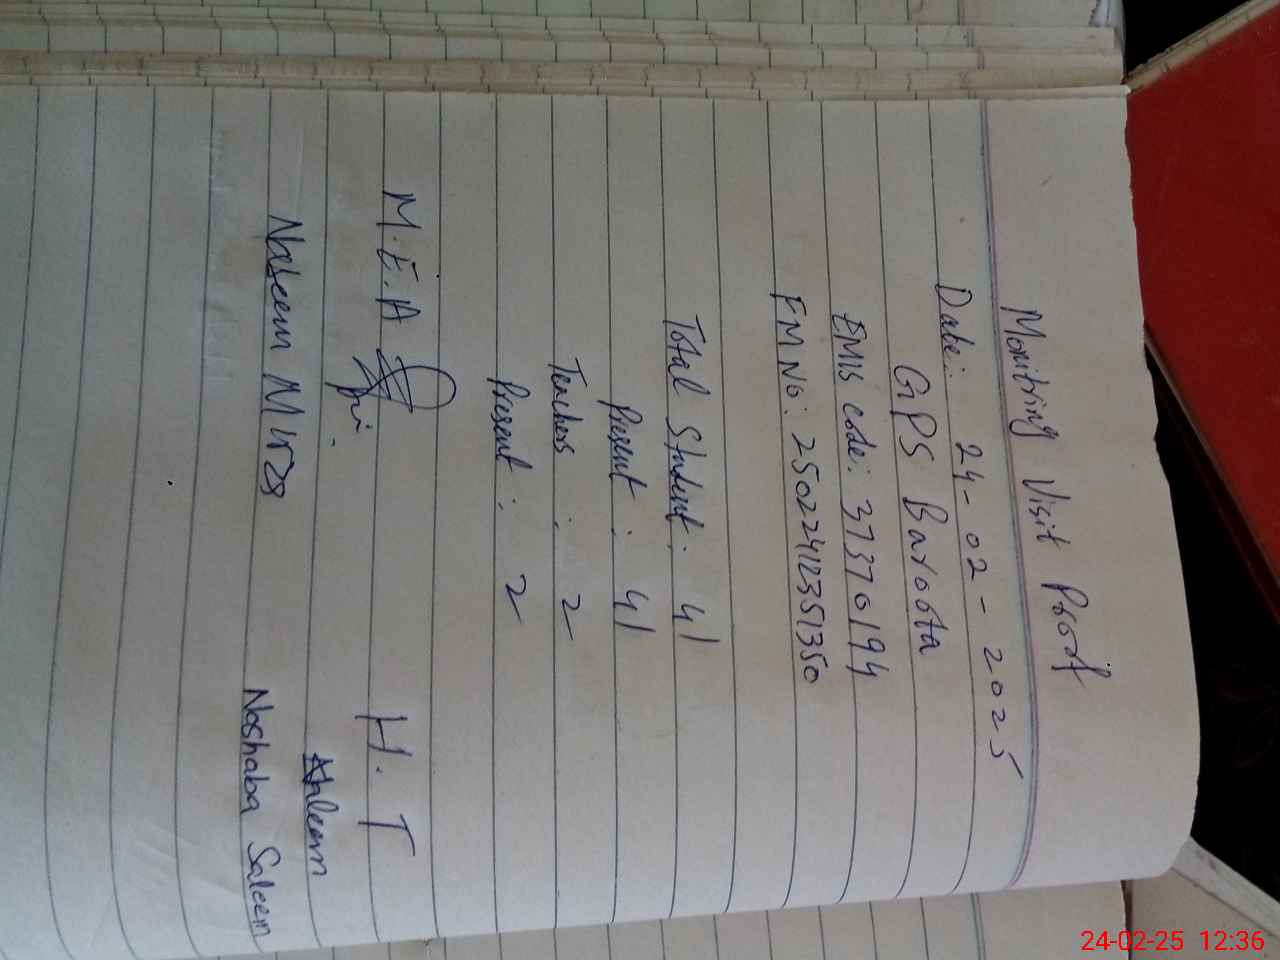 Monitring Visit Proof
Date: 24-02-2025
GPS Baroota
EMIS code: 37370194
FM No: 25022412351350
Total Student. 41
Present : 41
Teachers : 2
Present : 2
M.E.A
H.T
Naseem Mirza
Noshaba Saleem
24-02-25 12:36